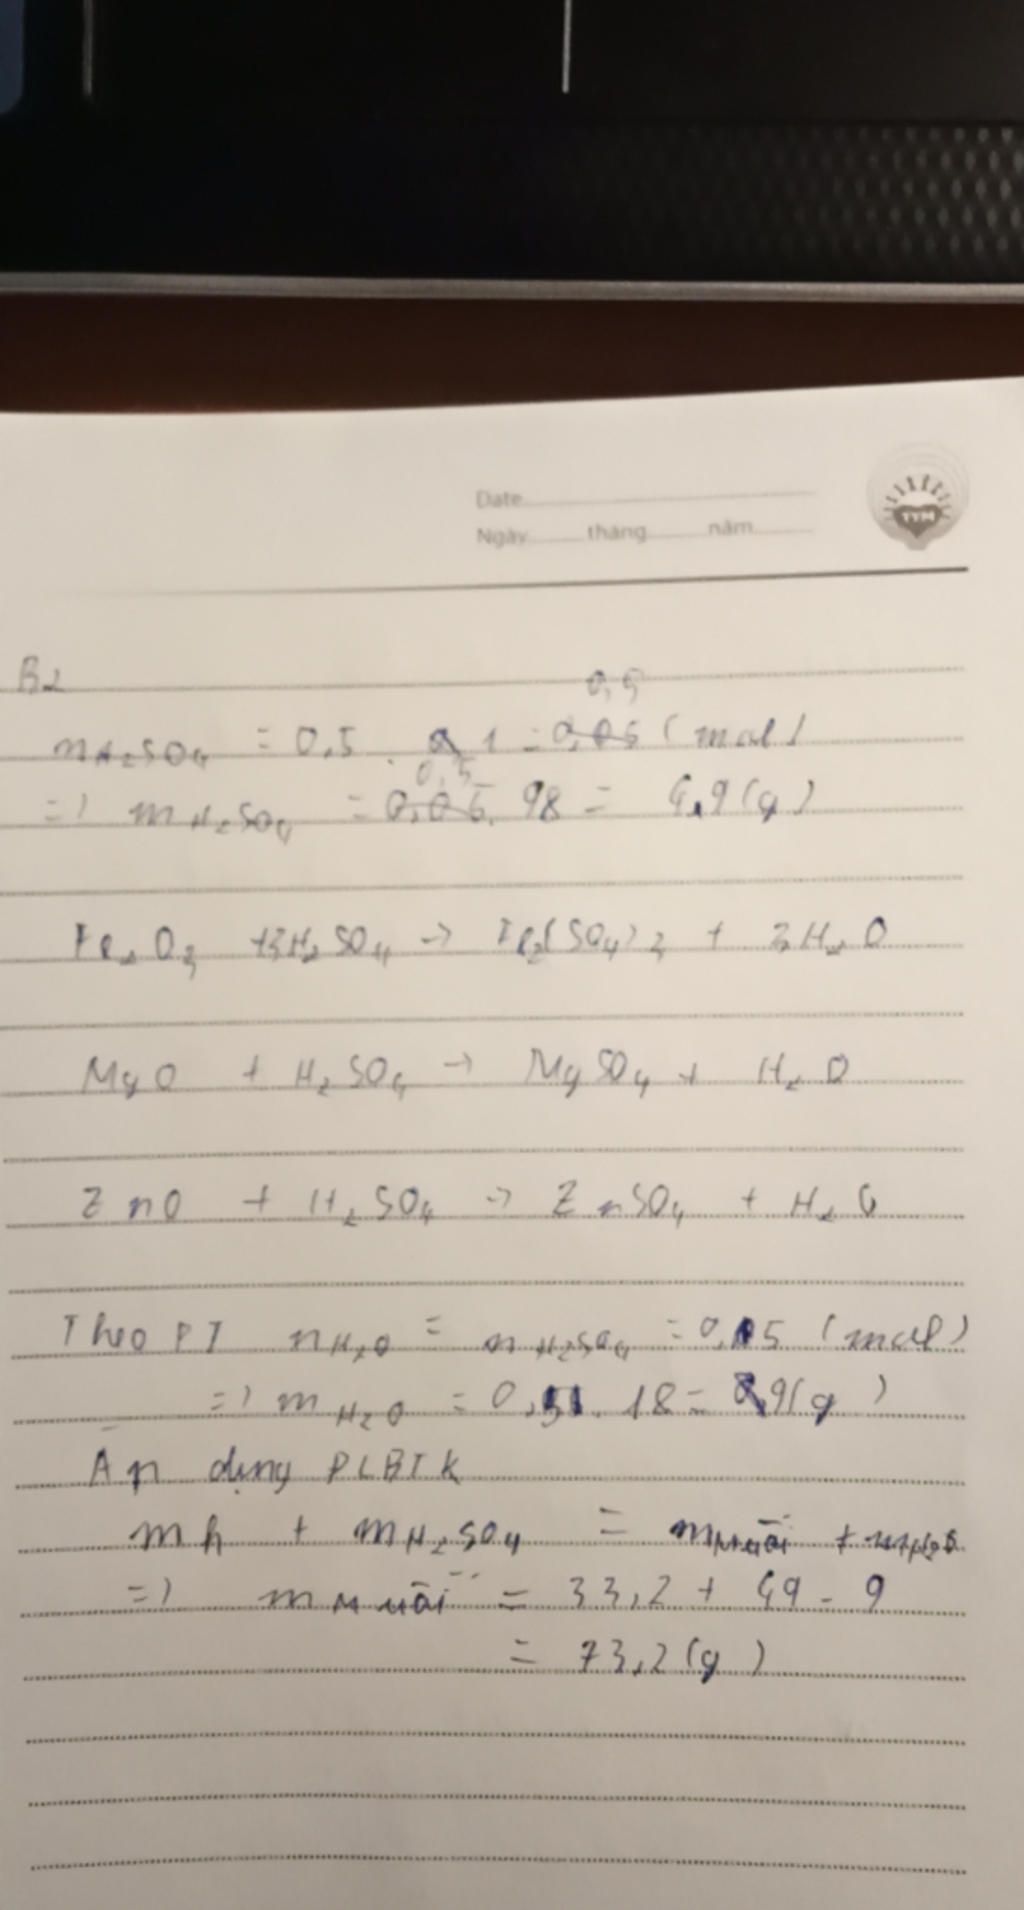 Date
Ngày tháng năm
TYM
B2
0,5
nH2SO4 = 0,5 . 1 = 0,05 (mol)
0,5
=> mH2SO4 = 0,05. 98 = 4,9 (g)
Fe2O3 + 3H2SO4 -> Fe2(SO4)3 + 3H2O
MgO + H2SO4 -> MgSO4 + H2O
ZnO + H2SO4 -> ZnSO4 + H2O
Theo PT nH2O = nH2SO4 = (mol)
=> mH2O = . 18 = 9(g)
Áp dụng PLBTK
mh + mH2SO4 = mMuối + mH2O
=> mMuối = 33,2 + 49 - 9
= 73,2 (g)